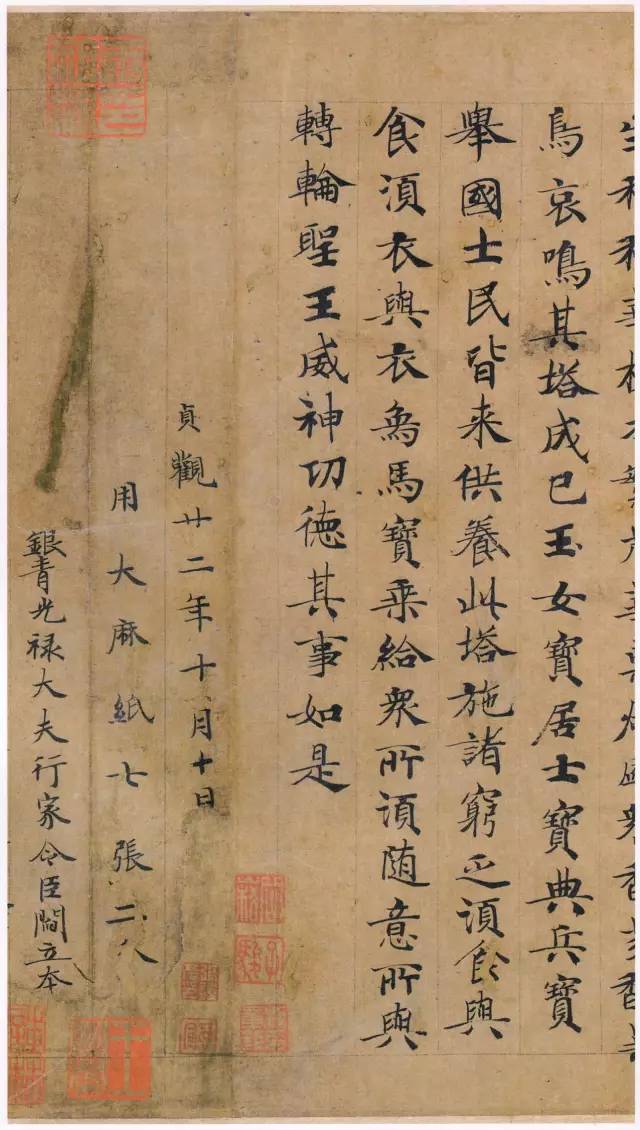 鳥哀鳴其塔成已玉女寶居士寶典兵寶
舉國士民皆来供養此塔施諸窮乏湏食與
食湏衣與衣象馬寶乗給衆所湏随意所與
轉輪聖王威神功徳其事如是
貞觀廿二年十月十日
用大麻紙七張二分
銀青光禄大夫行家令臣閻立本